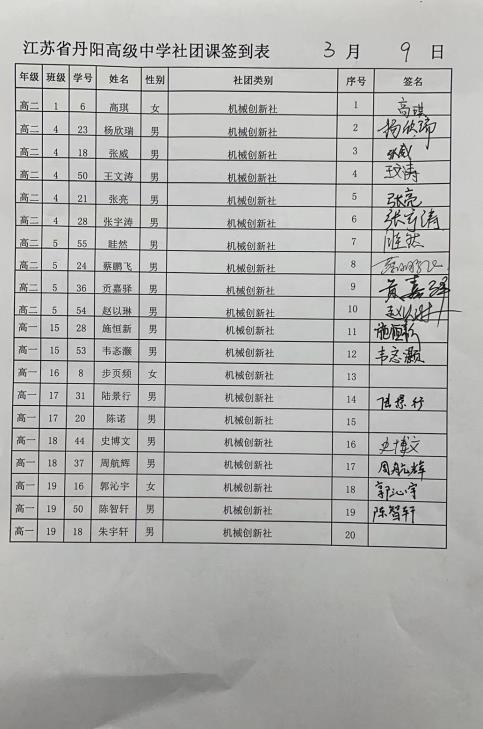 江苏省丹阳高级中学社团课签到表 3 月 9 日
年级 班级 学号 姓名 性别 社团类别 序号 签名
高二 1 6 高琪 女 机械创新社 1 高琪
高二 4 23 杨欣瑞 男 机械创新社 2 杨欣瑞
高二 4 18 张威 男 机械创新社 3 张威
高二 4 50 王文涛 男 机械创新社 4 王文涛
高二 4 21 张亮 男 机械创新社 5 张亮
高二 4 28 张宇涛 男 机械创新社 6 张宇涛
高二 5 55 眭然 男 机械创新社 7 眭然
高二 5 24 蔡鹏飞 男 机械创新社 8 蔡鹏飞
高二 5 36 贡嘉驿 男 机械创新社 9 贡嘉驿
高二 5 54 赵以琳 男 机械创新社 10 赵以琳
高一 15 28 施恒新 男 机械创新社 11 施恒新
高一 15 53 韦忞灏 男 机械创新社 12 韦忞灏
高一 16 8 步页频 女 机械创新社 13
高一 17 31 陆景行 男 机械创新社 14 陆景行
高一 17 20 陈诺 男 机械创新社 15
高一 18 44 史博文 男 机械创新社 16 史博文
高一 18 37 周航辉 男 机械创新社 17 周航辉
高一 19 16 郭沁宇 女 机械创新社 18 郭沁宇
高一 19 50 陈智轩 男 机械创新社 19 陈智轩
高一 19 18 朱宇轩 男 机械创新社 20